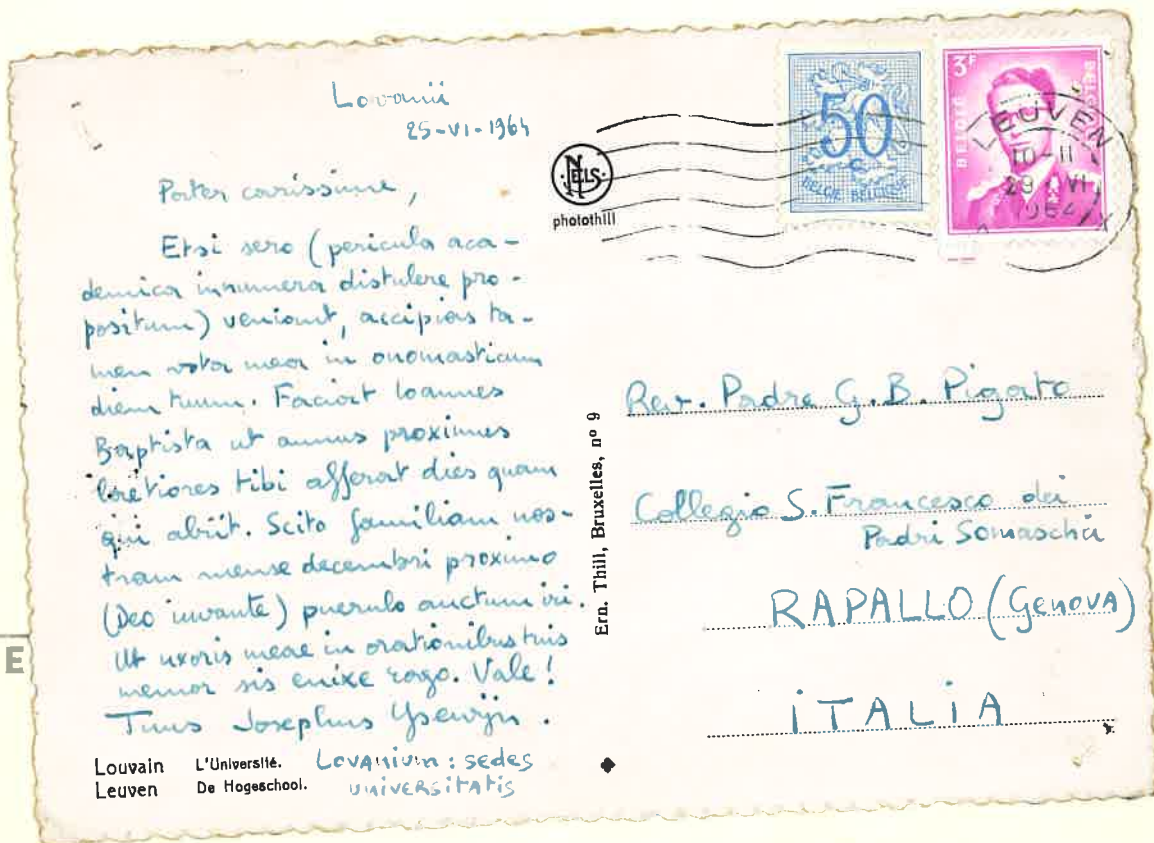 Lovanii
25-VI-1964
Pater carissime,
Etsi sero (pericula aca-
demica innumera distulere pro-
positum) veniant, accipias ta-
men vota mea in onomasticum
diem tuum. Faciat Ioannes
Baptista ut annus proximus
laetiores tibi afferat dies quam
qui abiit. Scito familiam nos-
tram mense decembri proximo
(Deo iuvante) puerulo auctum iri.
Ut uxoris meae in orationibus tuis
memor sis enixe rogo. Vale!
Tuus Josephus Ysewijn.
Louvain L'Université.
Leuven De Hogeschool.
Lovanium: sedes
universitatis
NELS
photothill
Ern. Thill, Bruxelles, nº 9
50
c
BELGIE BELGIQUE
3F
BELGIË
LEUVEN
10-11
29 VI
1964
Rev. Padre G.B. Pigato
Collegio S. Francesco dei
Padri Somaschi
RAPALLO (Genova)
iTALiA
E